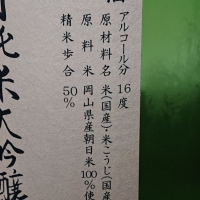 酒
アルコール分 16度
原材料名 米(国産)・米こうじ(国産
原料米 岡山県産朝日米100%使
精米歩合 50%
純米大吟醸